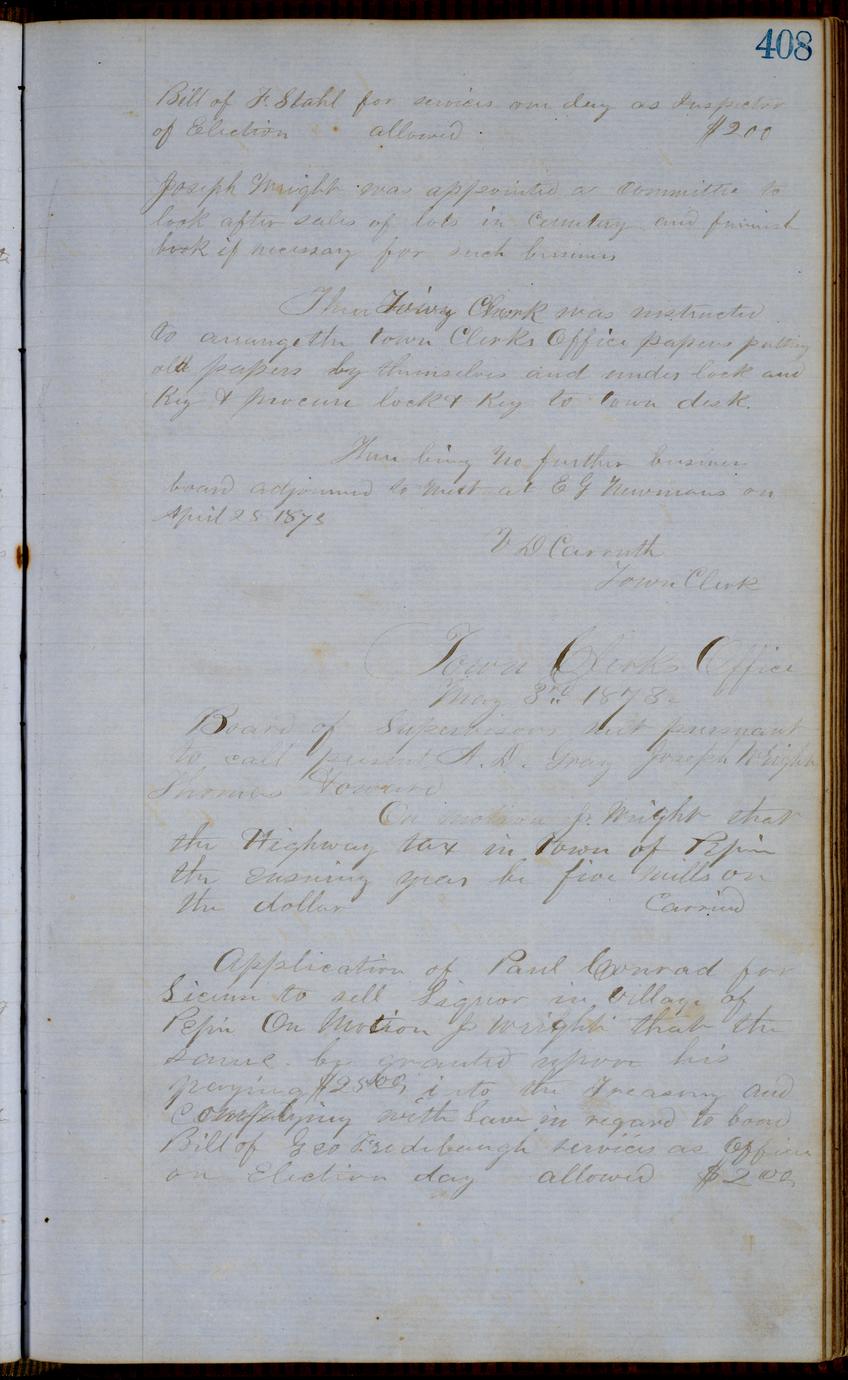 408
Bill of F. Stahl for services one day as Inspector
of Election allowed $200
Joseph Wright was appointed a committee to
look after sales of lots in Cemetery and furnish
book if necessary for such business
Then Town Clerk was instructed
to arrange the town Clerks Office papers putting
old papers by themselves and under lock and
Key & procure lock & Key to town desk.
There being no further business
board adjourned to meet at E G Newmans on
April 28 1873
V D Carruth
Town Clerk
Town Clerks Office
May 3rd 1873
Board of Supervisors met pursuant
to call present A. D. Gray Joseph Wright
Thomas Howard
On motion J. Wright that
the Highway tax in town of Pepin
the ensuing year be five mills on
the dollar Carried
Application of Paul Conrad for
License to sell Liquor in Village of
Pepin On Motion J Wright that the
same be granted upon his
paying $25.00 into the Treasury and
Complying with Law in regard to bond
Bill of Geo services as Officer
on Election day allowed $2.00